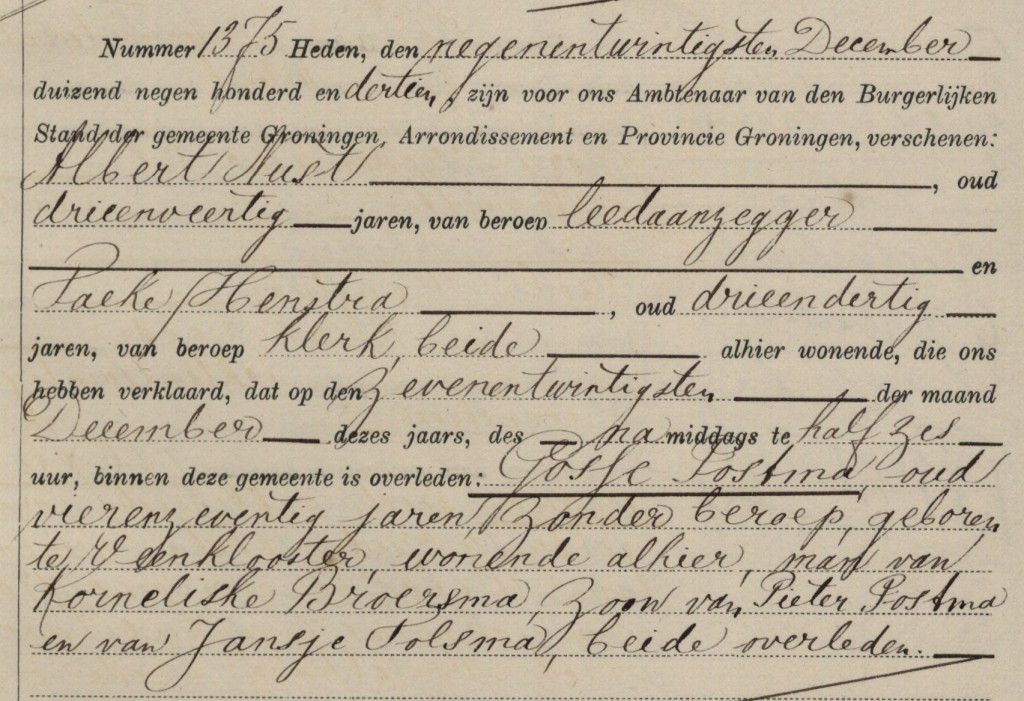 Nummer 1375 Heden, den negenentwintigsten December
duizend negen honderd en dertien, zijn voor ons Ambtenaar van den Burgerlijken
Stand der gemeente Groningen, Arrondissement en Provincie Groningen, verschenen:
Albert Nust, oud
drieenveertig jaren, van beroep leedaanzegger
en
Paeke Henstra, oud drieendertig
jaren, van beroep klerk, beide alhier wonende, die ons
hebben verklaard, dat op den zevenentwintigsten der maand
December dezes jaars, des na middags te half zes
uur, binnen deze gemeente is overleden: Gosse Postma, oud
vierenzeventig jaren, zonder beroep, geboren
te Veenklooster, wonende alhier, man van
Korneliske Broersma, zoon van Pieter Postma
en van Jansje Tolsma, beide overleden.